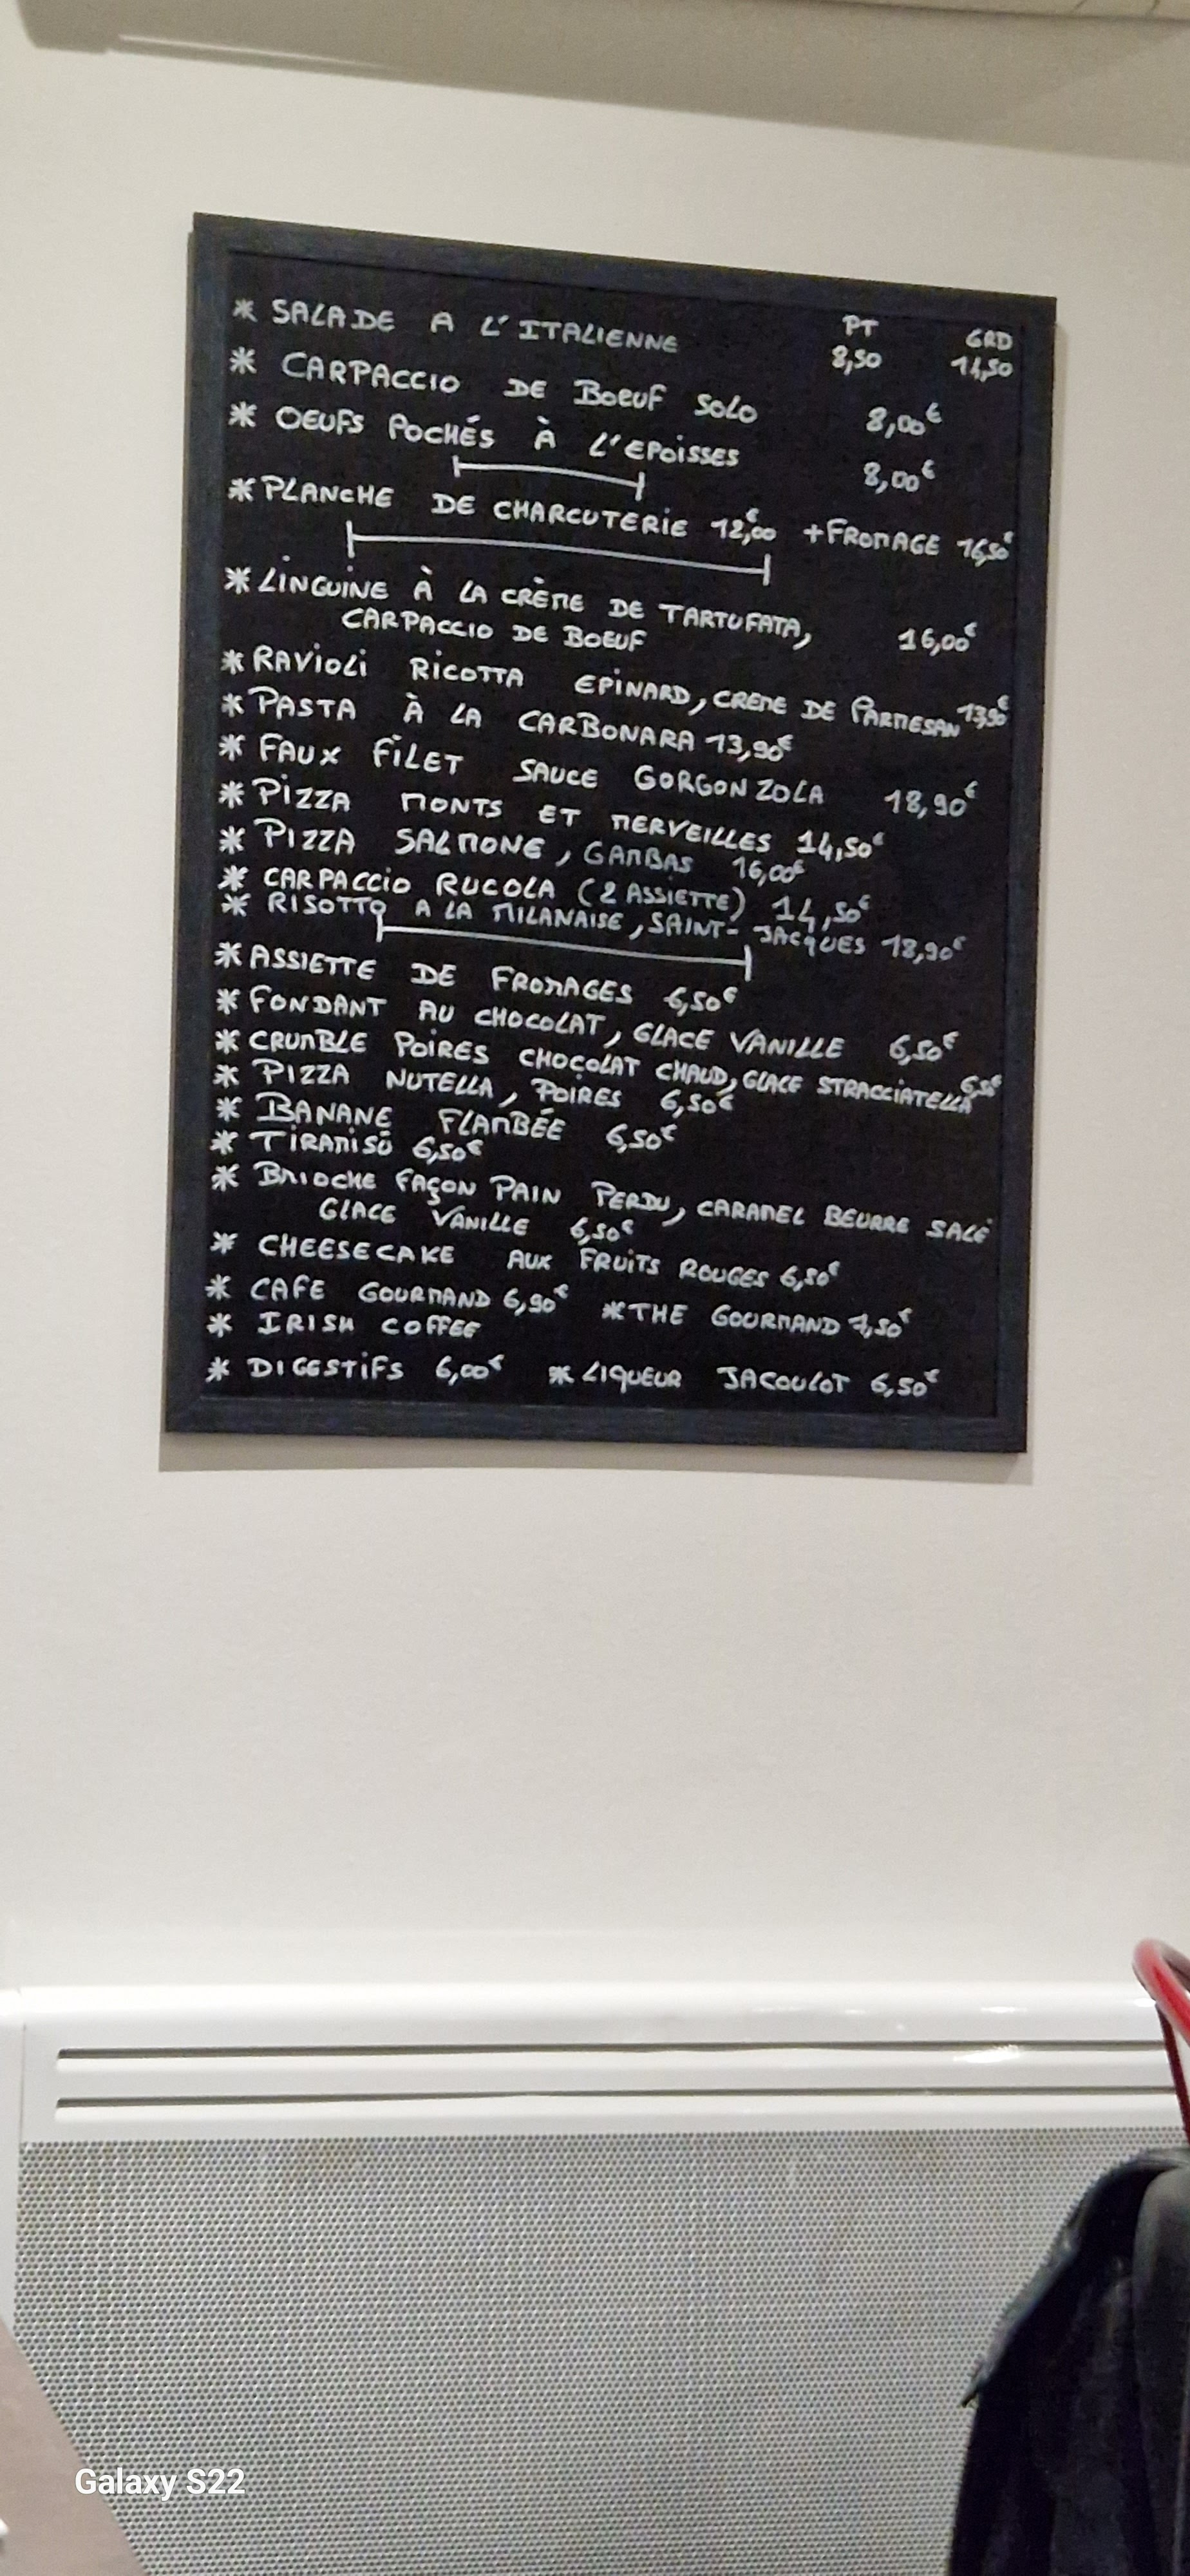 PT GRD
* SALADE A L'ITALIENNE 8,50 14,50
* CARPACCIO DE BOEUF SOLO 8,00€
* OEUFS POCHÉS À L'EPOISSES 8,00€
* PLANCHE DE CHARCUTERIE 12,00€ + FROMAGE 16,50€
* LINGUINE À LA CRÈME DE TARTUFATA, 16,00€
CARPACCIO DE BOEUF
* RAVIOLI RICOTTA EPINARD, CREME DE PARMESAN 13,90€
* PASTA À LA CARBONARA 13,90€
* FAUX FILET SAUCE GORGONZOLA 18,90€
* PIZZA MONTS ET MERVEILLES 14,50€
* PIZZA SALMONE, GAMBAS 16,00€
* CARPACCIO RUCOLA (2 ASSIETTE) 14,50€
* RISOTTO A LA MILANAISE, SAINT-JACQUES 18,90€
* ASSIETTE DE FROMAGES 6,50€
* FONDANT AU CHOCOLAT, GLACE VANILLE 6,50€
* CRUMBLE POIRES CHOCOLAT CHAUD, GLACE STRACCIATELLA 6,50€
* PIZZA NUTELLA, POIRES 6,50€
* BANANE FLAMBÉE 6,50€
* TIRAMISÙ 6,50€
* BRIOCHE FAÇON PAIN PERDU, CARAMEL BEURRE SALÉ
GLACE VANILLE 6,50€
* CHEESECAKE AUX FRUITS ROUGES 6,50€
* CAFE GOURMAND 6,90€ * THE GOURMAND 7,50€
* IRISH COFFEE
* DIGESTIFS 6,00€ * LIQUEUR JACOULOT 6,50€
Galaxy S22